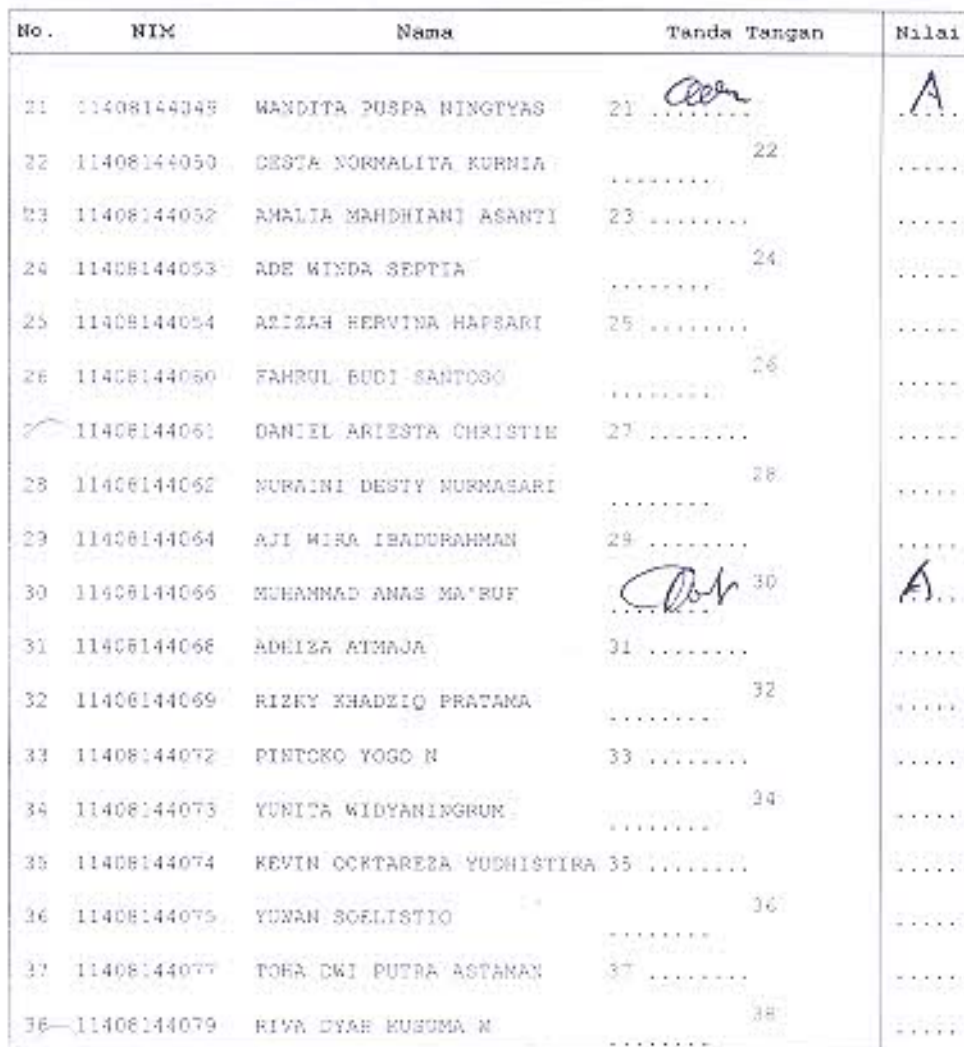 No. NIM Nama Tanda Tangan Nilai
21 11408144049 WANDITA PUSPA NINGTYAS 21 ........ A .....
22 11408144050 DESTA NORMALITA KURNIA ........ 22 .....
23 11408144052 AMALIA MAHDHIANI ASANTI 23 ........ .....
24 11408144053 ADE WINDA SEPTIA ........ 24 .....
25 11408144054 AZIZAH HERVINA HAPSARI 25 ........ .....
26 11408144060 FAHRUL BUDI SANTOSO ........ 26 .....
11408144061 DANIEL ARIESTA CHRISTIE 27 ........ .....
28 11408144062 NURAINI DESTY NURMASARI ........ 28 .....
29 11408144064 AJI WIRA IBADURAHMAN 29 ........ .....
30 11408144066 MUHAMMAD ANAS MA'RUF ........ 30 A .....
31 11408144068 ADHIZA ATMAJA 31 ........ .....
32 11408144069 RIZKY KHADZIQ PRATAMA ........ 32 .....
33 11408144072 PINTOKO YOGO N 33 ........ .....
34 11408144073 YUNITA WIDYANINGRUM ........ 34 .....
35 11408144074 KEVIN OCKTAREZA YUDHISTIRA 35 ........ .....
36 11408144075 YUWAN SOELISTIO ........ 36 .....
37 11408144077 TOHA DWI PUTRA ASTAMAN 37 ........ .....
38 11408144079 RIVA DYAH KUSUMA W ........ 38 .....